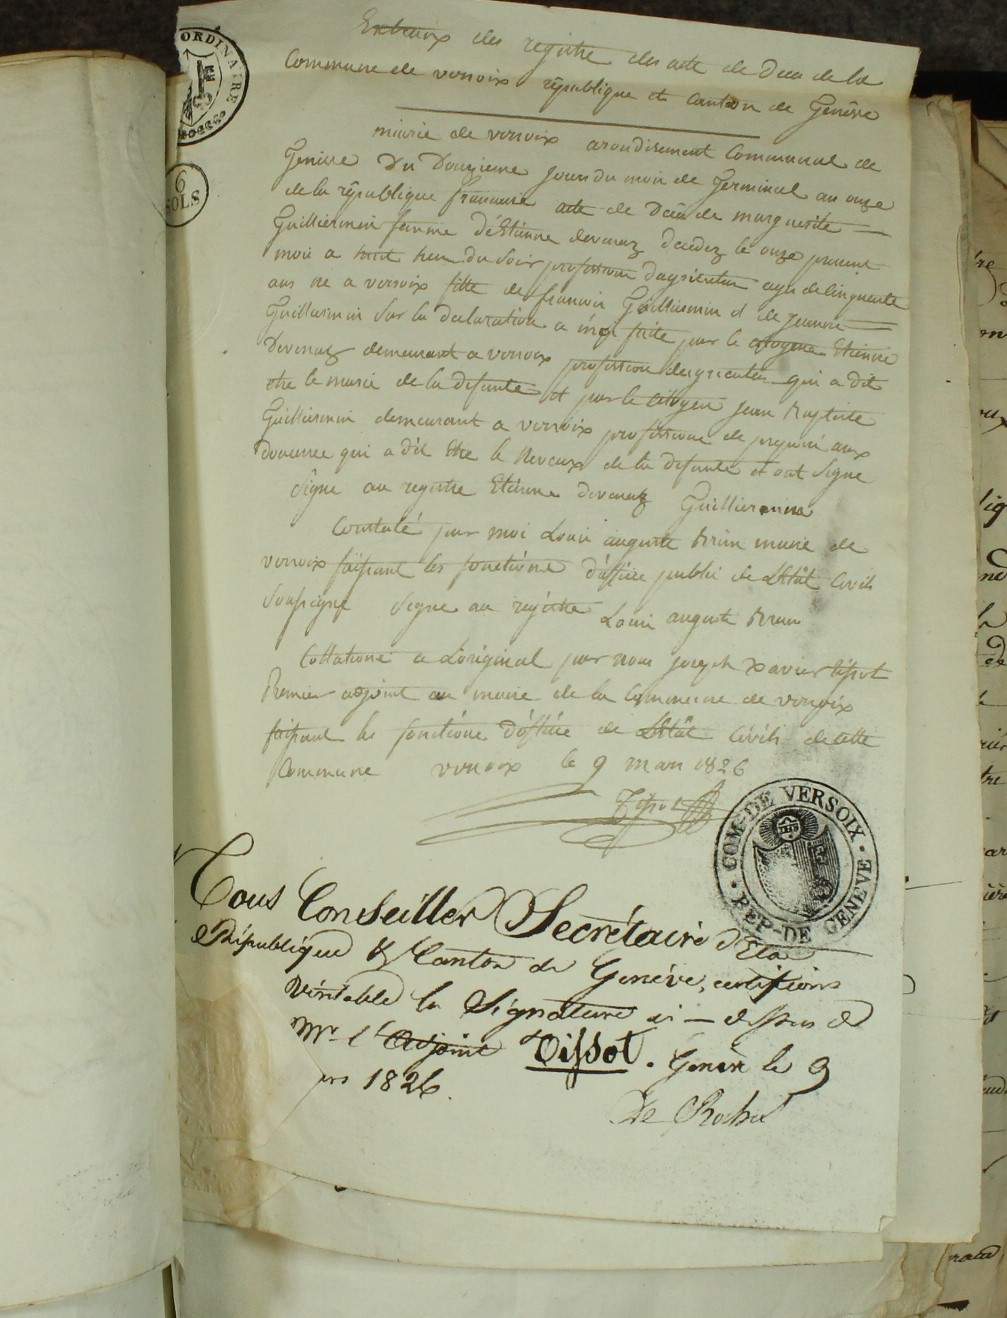 ORDINAIRE
6
SOLS
Extraix des registre des acte de Deces de la
Commune de versoix république et canton de Genève
mairie de versoix arondisement Communal de
Genève Du Douzieme jours du mois de Germinal an onze
de la république francaise acte de Deces de marguerite
Guilliermin femme d'Etienne devenaz décedez le onze present
mois a huit heure du soir profession d'agriculteur agee de cinquante
ans ne a versoix fille de francois Guilliermin et de jeanne
Guilliermin Sur la declaration a moi faite par le citoyene Etienne
Devenaz demeurant a versoix profession de qui a dit
etre le marie de la defunte et par le citoyen jean Baptiste
Guilliermin demeurant a versoix profession de preposé aux
douanne qui a dit Etre le Neveux de la defunte et ont Signe
Signe au registre Etienne devenaz Guilliermin
Constaté par moi Louis auguste Brun maire de
versoix faisant les fonctions d'officie public de L'Etât Civils
Soussigne Signe au registre Louis auguste Brun
Collatione a L'original par nous joseph Xavier tissot
Premier adjoint au maire de la Commune de versoix
faisant les fonctions d'officie de L'Etât Civils de cette
Commune versoix le 9 mars 1826
Tissot
COM. DE VERSOIX
REP. DE GENEVE
Nous Conseiller Secrétaire d'Etat
République & Canton de Genève, certifions
véritable la Signature ci-dessus de
Mr. l'Adjoint Tissot. Genève le 9
1826.